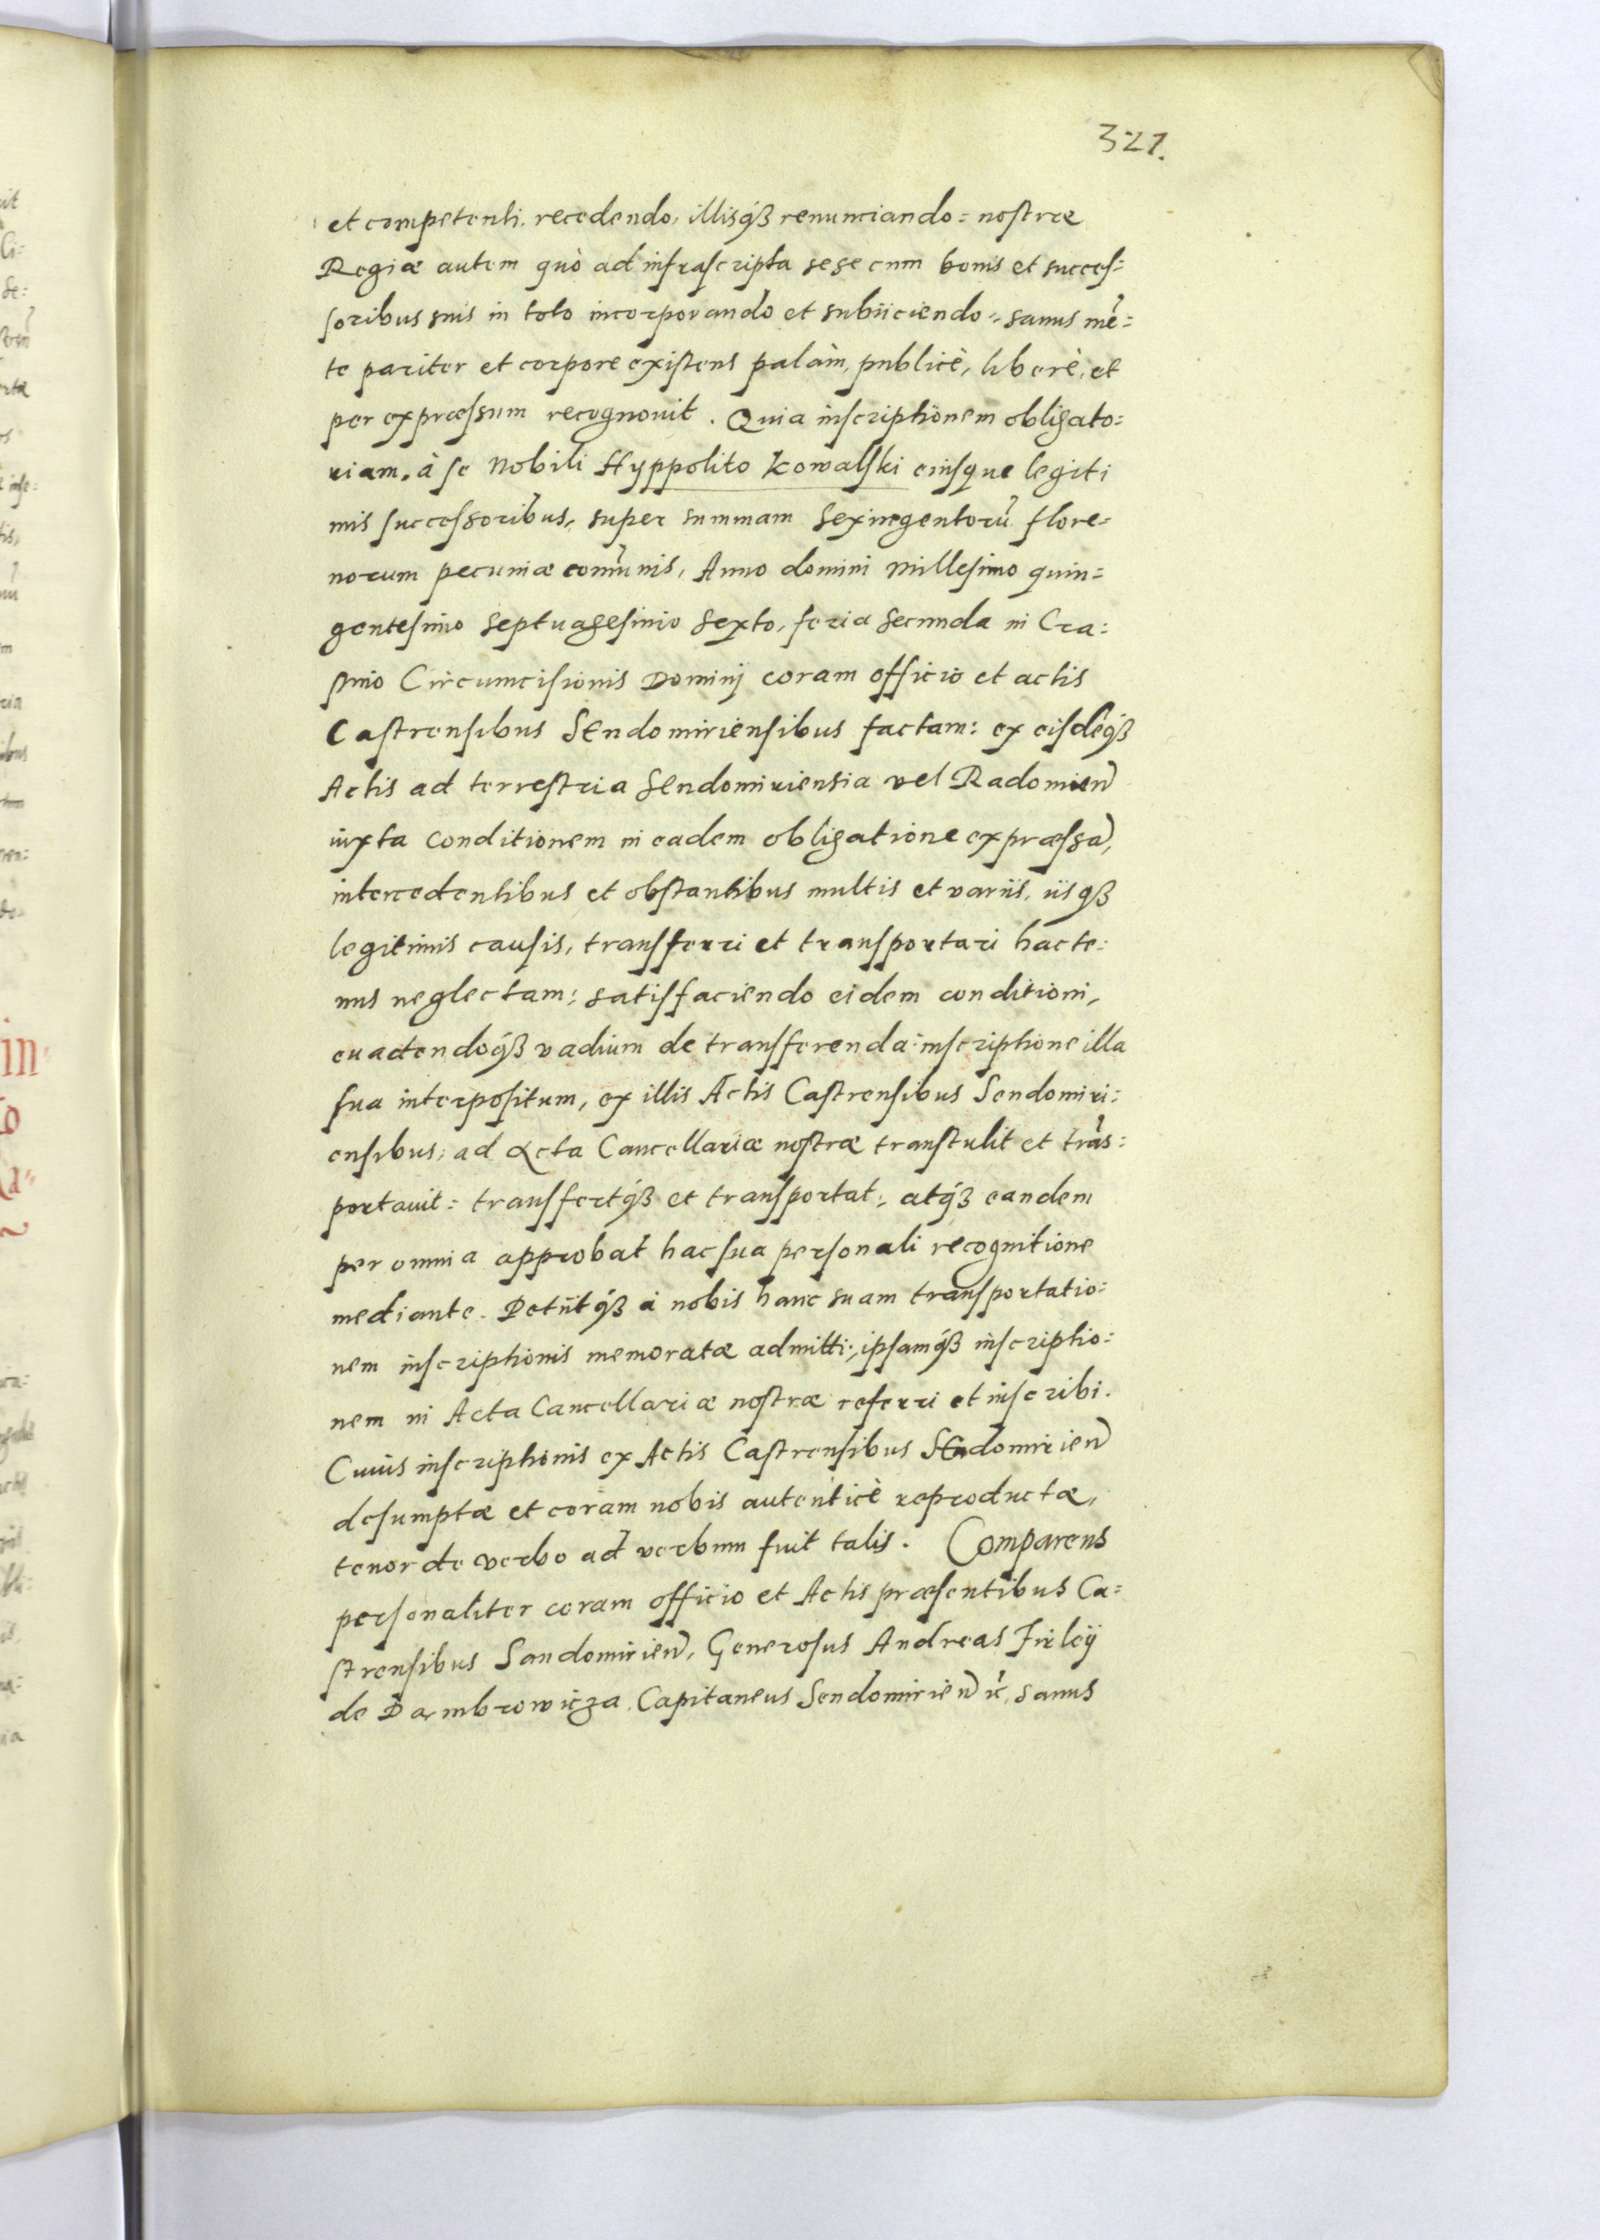 321.
et competenti recedendo, illisq́ꝫ renunciando: nostræ
Regiæ autem quò ad infrascripta sese cum bonis et succes:
soribus suis in toto incorporando et subiiciendo: sanus mẽ:
te pariter et corpore existens palàm, publicè, liberè, et
per expræssum recognouit. Quia inscriptionem obligato:
riam, à se Nobili Hyppolito Kowalski eiusque legiti
mis successoribus, super summam Sexingentorũ flore:
norum pecuniæ com̃unis, Anno domini Millesimo quin:
gentesimo Septuagesimo Sexto, feria Secunda in Cra:
stino Circumcisionis Dominj coram officio et actis
Castrensibus SEndomiriensibus factam: ex eisdẽq́ꝫ
Actis ad terrestria SEndomiriensia vel Radomien̄
iuxta Conditionem in eadem obligatione expræssã,
intercedentibus et obstantibus multis et variis, iisq́ꝫ
legitimis causis, transferri et transportari hacte:
nus neglectam: satisfaciendo eidem conditioni,
euadendoq́ꝫ vadium de transferenda inscriptione illa
sua interpositum, ex illis Actis Castrensibus Sendomiri:
ensibus, ad Acta Cancellariæ nostræ transtulit et trãs:
portauit: transfertq́ꝫ et transportat: atq́ꝫ eandem
per omnia approbat hac sua personali recognitione
mediante. Petiitq́ꝫ à nobis hanc suam transportatio:
nem inscriptionis memoratæ admitti, ipsamq́ꝫ inscriptio:
nem in Acta Cancellariæ nostræ referri et inscribi.
Cuius inscriptionis ex Actis Castrensibus SEndomirien̄
desumptæ et coram nobis autenticè reproductæ,
tenor de verbo ad verbum fuit talis. Comparens
personaliter coram officio et Actis præsentibus Ca:
strensibus Sandomirien̄, Generosus Andreas Firleij
de Dambrowicza Capitaneus Sendomirien̄ &c̃, sanus